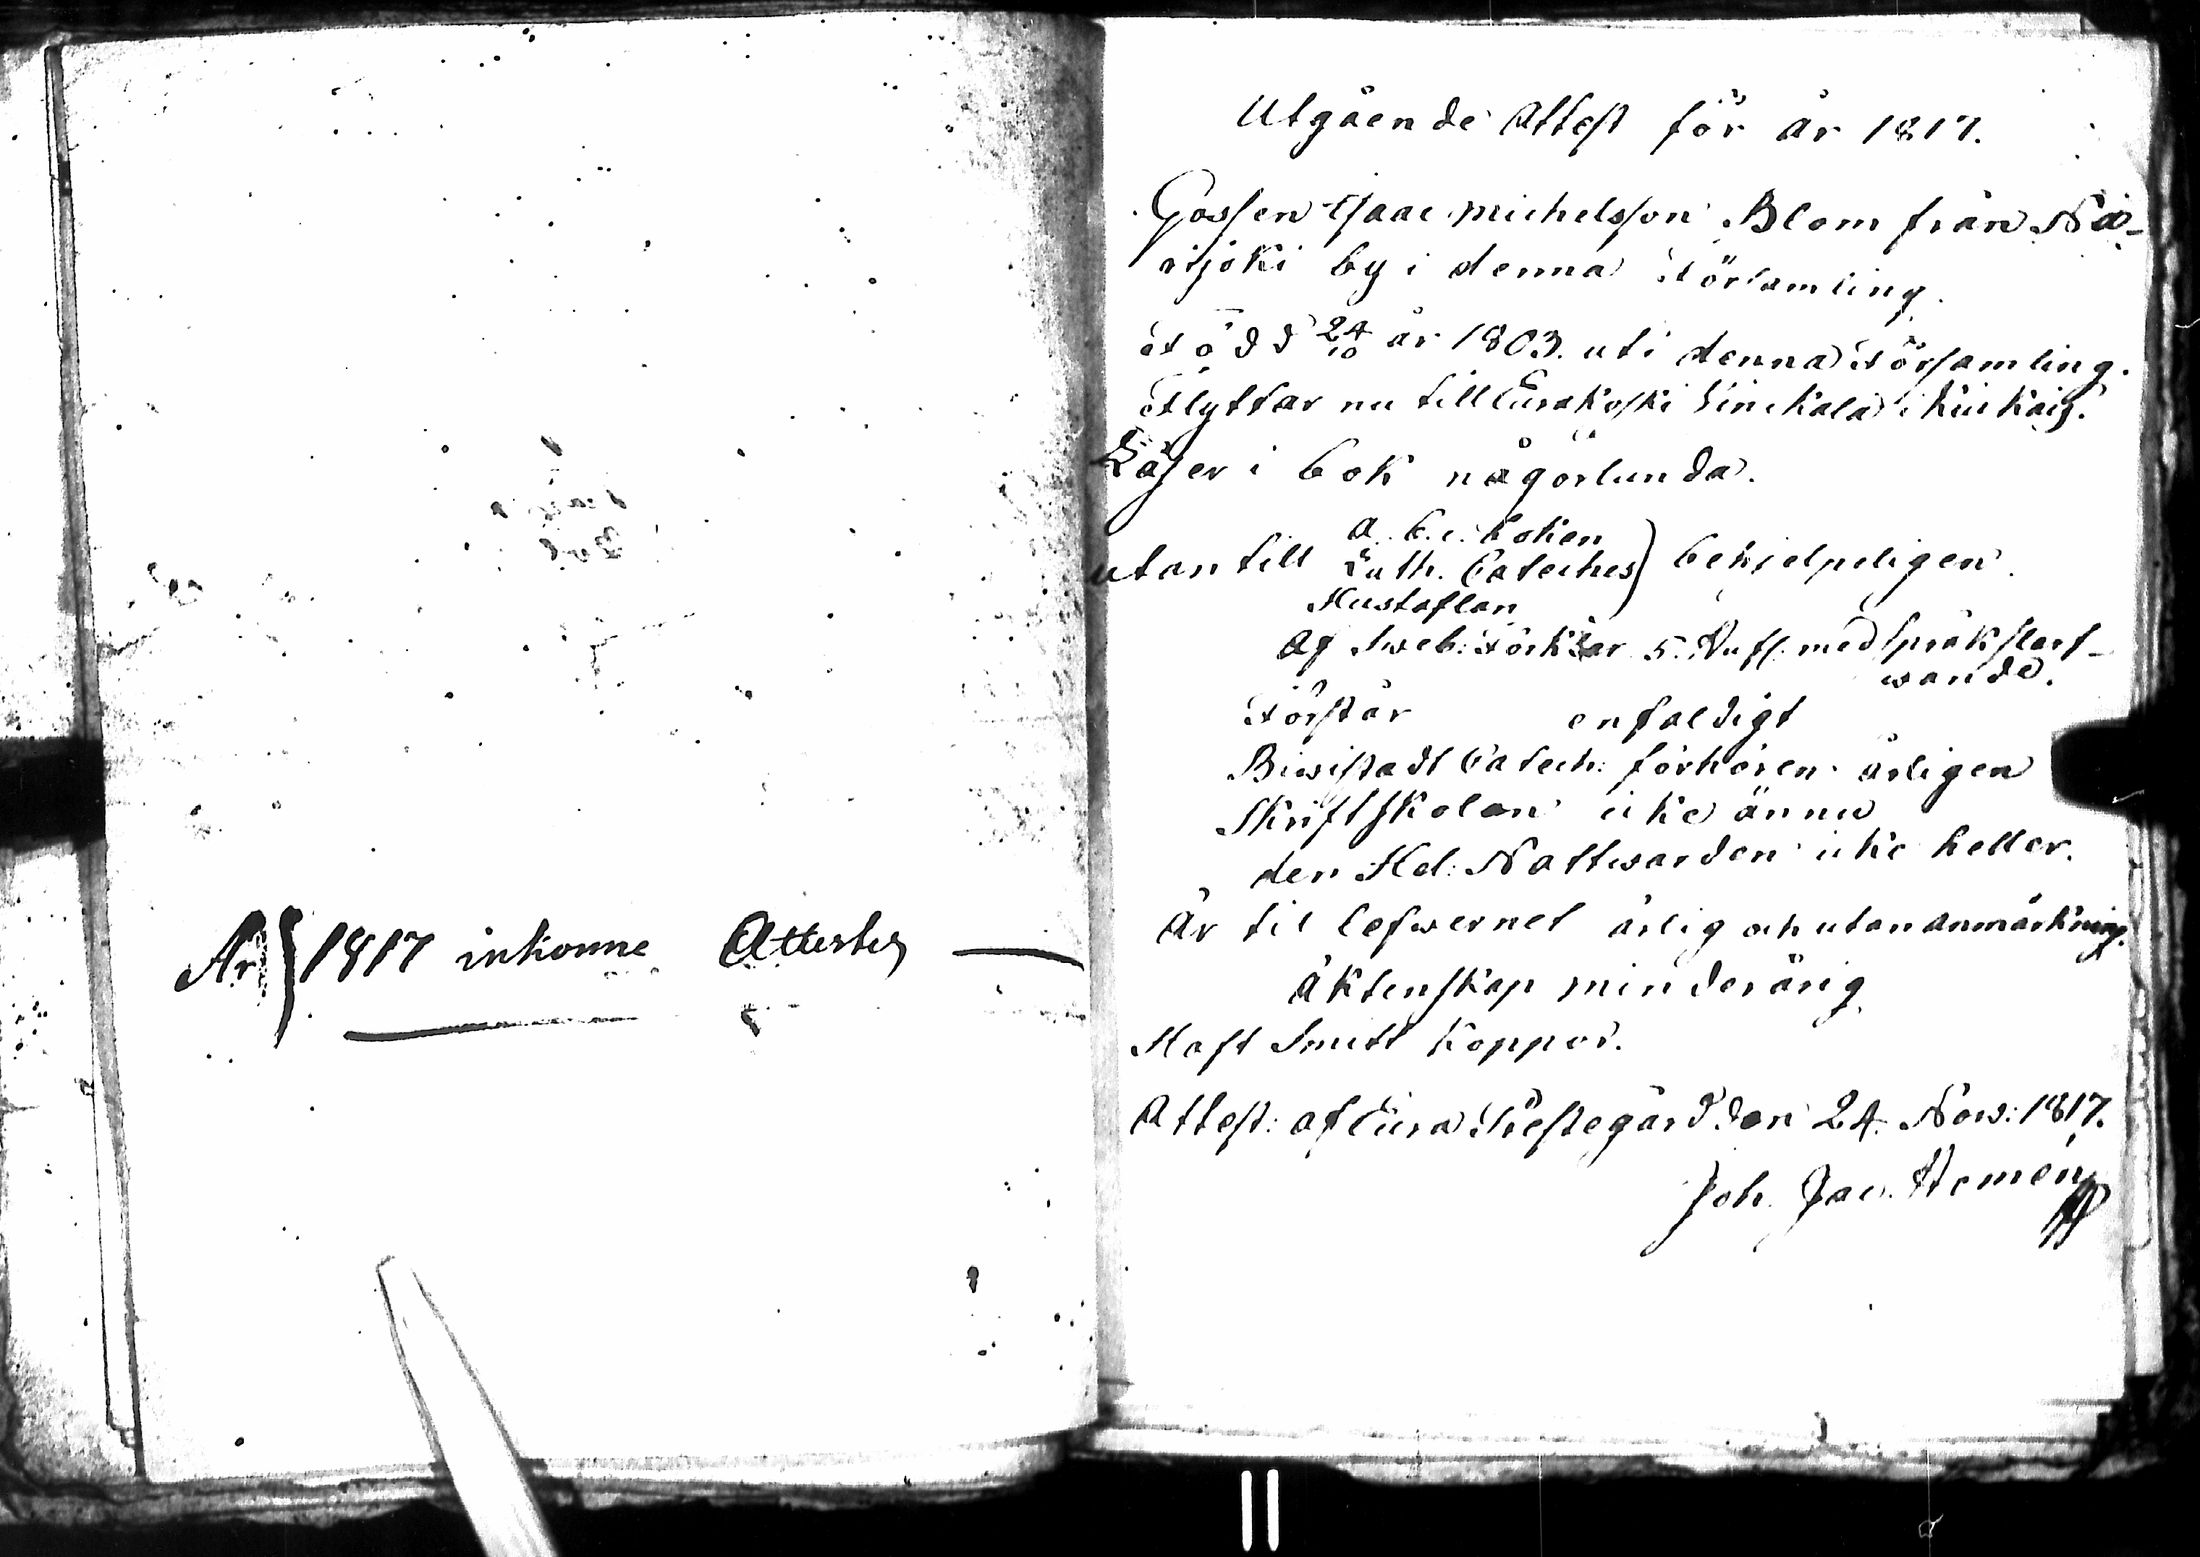 År 1817 inkomne Attester
Utgående Attest för år 1817.
Gossen Isaac Michelsson Blom från Nä-
rijoki by i denna Församling.
Född 24/10 år 1803. uti denna Församling.
Flyttar nu till Eurakoski i Kiukais.
Läser i bok någorlunda.
utantill A. b. c. boken
Luth. Cateches) behjelpeligen.
Hustaflan
Af Sweb: Förklar 5. Huf: med språk starf-
wande.
Förstår enfaldigt
Biwistadt Catech: förhören årligen
Skriftskolan icke ännu
den Hel: Nattwarden icke heller.
Är til lefwernet ärlig och utan anmärkning.
Äktenskap minderårig
Haft Smitt Koppor.
Attest: af Eura Prestegård den 24. Now: 1817.
Joh. Jac. Homén